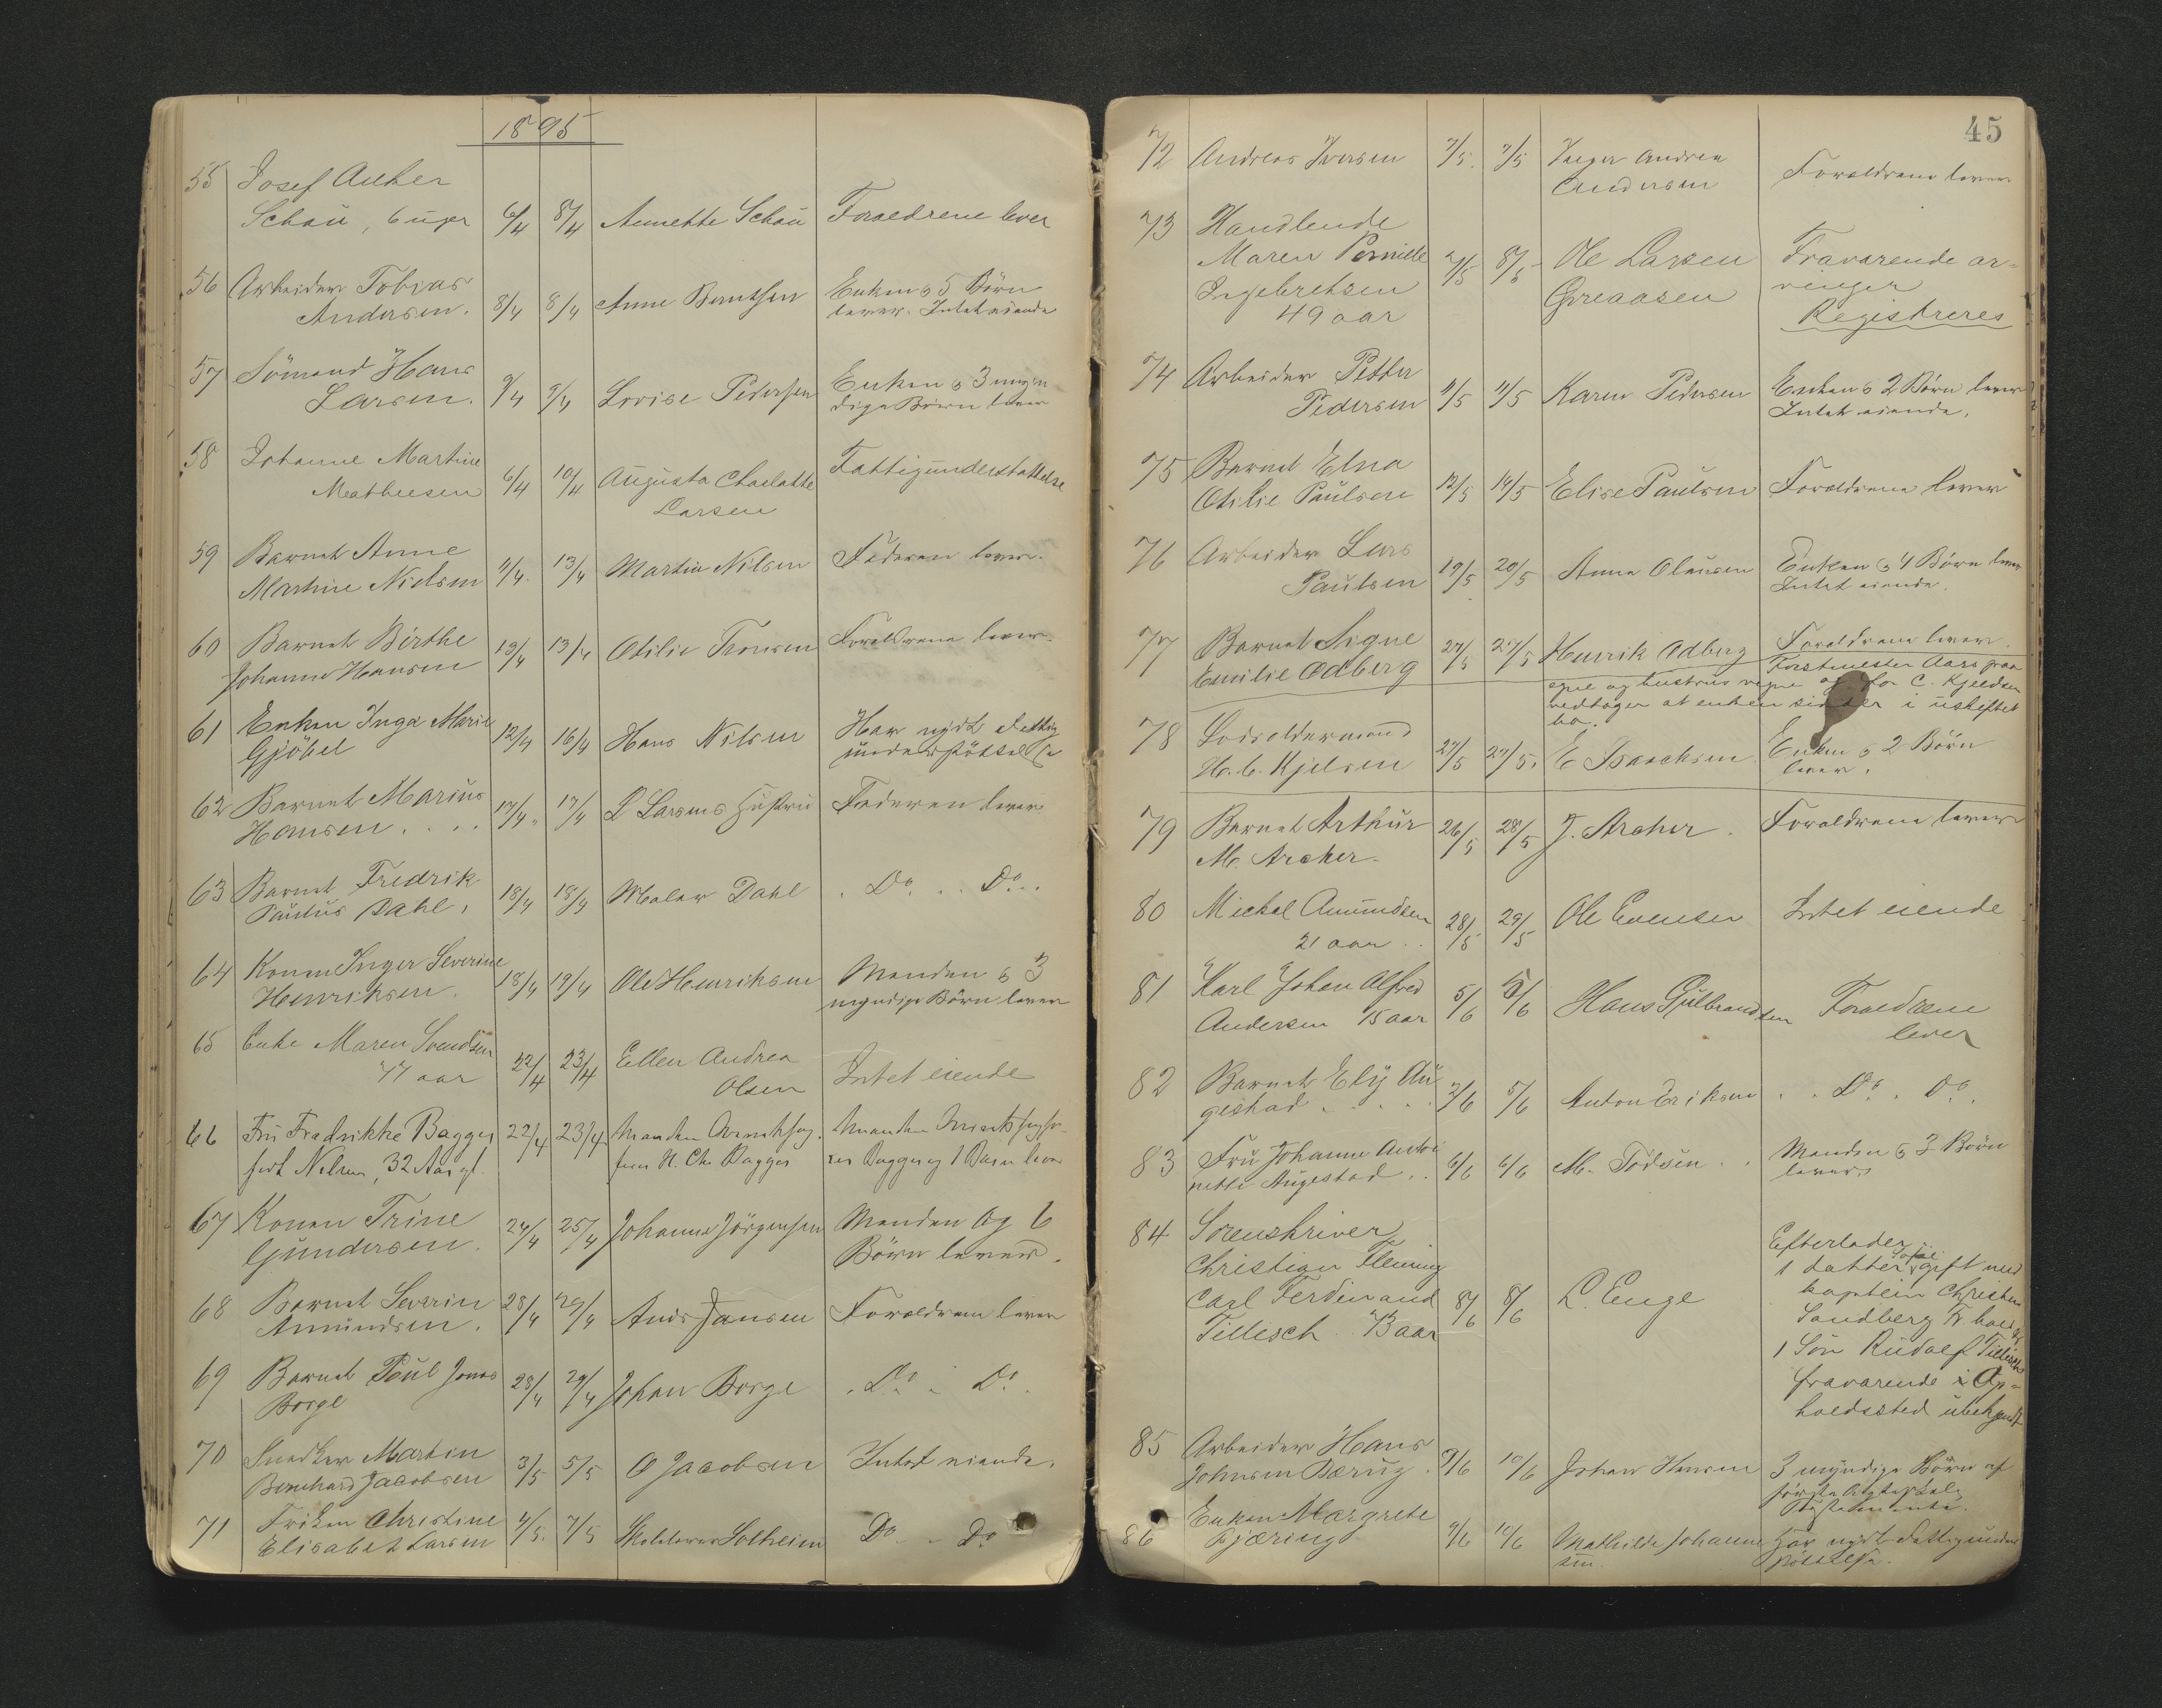 1895
55 Josef Anker
Schau, 6 uger 6/4 8/4 Annethe Schau Foraeldrene lever
56 Arbeider Tobias Enken & 5 Børn
Andersen. 8/4 8/4 Anne Berntsen lever. Intet eiende
57 Sömand Hans Enken & 3 myn
Larsen. 9/4 9/4 Lovise Pedersen dige Børn lever
58 Johanne Martine Fattigunderstøttelse
Mathiesen 6/4 10/4 Augusta Charlotte
Larsen
59 Barnet Anne Faderen lever.
Martine Nielsen 11/4. 13/4 Martin Nilsen
60 Barnet Birthe Foraldrene lever.
Johanne Hansen 13/4 13/4 Otilie Tronsen
61 Enken Inga Marie Har nydt Fattig
Gjöbel 12/4 16/4 Hans Nilsen understöttelse
62 Barnet Marius
Hansen. . . . 17/4. 17/4 L Larsens Hustru Faderen lever
63 Barnet Fredrik
Paulus Dahl, 18/4 18/4 Malar Dahl . Do. . . Do. .
64 Konen Inger Severine Manden & 3
Henriksen. 18/4 19/4 Ole Henriksen myndige Börn lever
65 Enke Maren Svendsen Ellen Andrea
77 aar 22/4 23/4 Olsen Intet eiende
66 Fru Fredrikke Bagger 22/4 23/4 Manden
født Nelsen, 32 Aar gl. N. Chr Bagger Bagger og 1 Barn lever
67 Konen Trine Manden og 6
Gundersen. 24/4 25/4 Johanne Jörgensen Börn lever.
68 Barnet Severin
Amundsen. 28/4 29/4 Ands Jansen Foraldrene lever
69 Barnet Poul Jonas
Borge 28/4 29/4 Johan Borge . Do. - Do.
70 Snedker Martin
Bernhard Jacobsen 3/5 5/5 O Jacobsen Intet eiende.
71 Fröken Christine
Elisabet Larsen 4/5. 7/5 Solheim Do - Do
45
72 Andreas Iversen 7/5. 7/5 Inger Andrea
Andersen Foraldrene lever
73 Handlende
Maren Pernille 7/5 8/5 Ole Larsen Fravarende ar-
Ingebretsen Greaasen vinger
49 aar Registreres
74 Arbeider Petter Enken & 2 Börn lever
Pedersen 11/5 11/5 Karen Pedersen Intet eiende.
75 Barnet Elna
Otilie Paulsen 12/5 14/5 Elise Paulsen Foraldrene lever
76 Arbeider Lars Enken & 4 Börn lever
Paulsen 19/5 20/5 Anna Olausen Intet eiende.
77 Barnet Signe Foraldrene lever.
Emilie Odberg 27/5 27/5 Henrik Odberg Forstmester Aars paa
egne og hustrus vegne og for C. Kjeldsen
vedtager at enken sidder i uskiftet
bo.
78 Lodsoldermand Enken & 2 Börn
H. C. Kjelsen 27/5 27/5. E Isachsen lever.
79 Barnet Arthur 26/5 28/5 J. Archer. Foraldrene lever
M. Archer.
80 Mickel Amundsen Ole Evensen Intet eiende
21 aar . . 28/5 29/5
81 Karl Johan Alfred
Andersen 15 aar 5/6 5/6 Hans Gulbrandsen Foraedrene
lever
82 Barnet Ely Au
gestad . . . . 2/6 5/6 Anton Eriksen . . Do. . Do.
83 Fru Johanne Antoi Manden & 3 Börn
nette Augestad . . 6/6 6/6 M. Tödsen . . lever
84 Sorenskriver Efterlader
Christian Fleming 1 datter Sofie gift med
Carl Ferdinand 8/6 8/6 L. Enge kaptein Christen
Tillisch 73 aar Sandberg Fr hald
1 Sön Rudolf Tillisch
fravarende & Op-
holdssted ubekjendt
85 Arbeider Hans
Johnsen Bærug. 9/6 10/6 Johan Hansen 3 myndige Börn af
første Ægteskab
Testamente.
86 Enken Margrete
Bjæring 9/6 10/6 Mathilde Johanne har nydt Fattigunder
sen. støttelse.